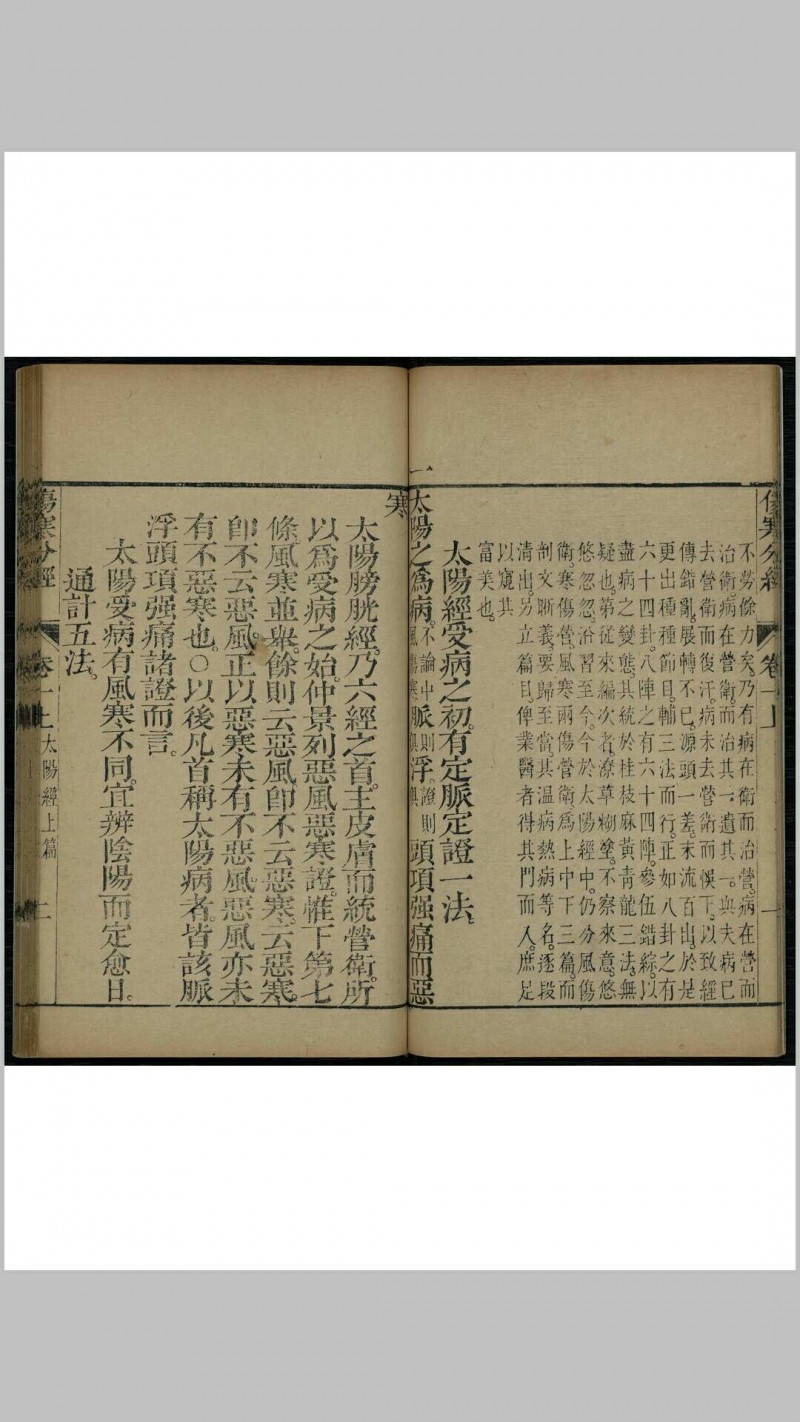 傷寒分經 卷一上 一
不勞餘力矣。乃有病在衛而治營。病在營而
治衛。病在營衛。而治其一。遺其一。與夫病已
去營衛而復汗。病未去營衛而悞下。以致經
傳錯亂。展轉不已。源頭一差。末流百出。於是
更出種種節目。輔三法而行。正如八卦之有
六十四卦。八陣之有六十四陣。參伍錯綜。以
盡病之變態。其統於桂枝麻黃青龍三法。無
疑也。第從來編次者。潦草糊塗。不察來意。悠
悠忽忽。沿習至今。今於太陽經中。仍分風傷
衛。寒傷營。風寒兩傷營衛。爲上中下三篇。而
剖文晰義。要歸至當。其溫病熱病等名。逐段
清出。另立篇目。俾業醫者得其門而入。庶足
以窺其
富美也。
太陽經受病之初。有定脈定證一法。
一
太陽之爲病。不論中風傷寒脈則俱浮。證則俱頭項强痛而惡
寒。
太陽膀胱經。乃六經之首。主皮膚而統營衛。所
以爲受病之始。仲景列惡風惡寒證。惟下第七
條風寒並舉。餘則云惡風卽不云惡寒。云惡寒
卽不云惡風。正以惡寒未有不惡風。惡風亦未
有不惡寒也。○以後凡首稱太陽病者。皆該脈
浮頭項强痛諸證而言。
太陽受病有風寒不同。宜辨陰陽而定愈日。
通計五法。
傷寒分經 卷一上 太陽經上篇 二